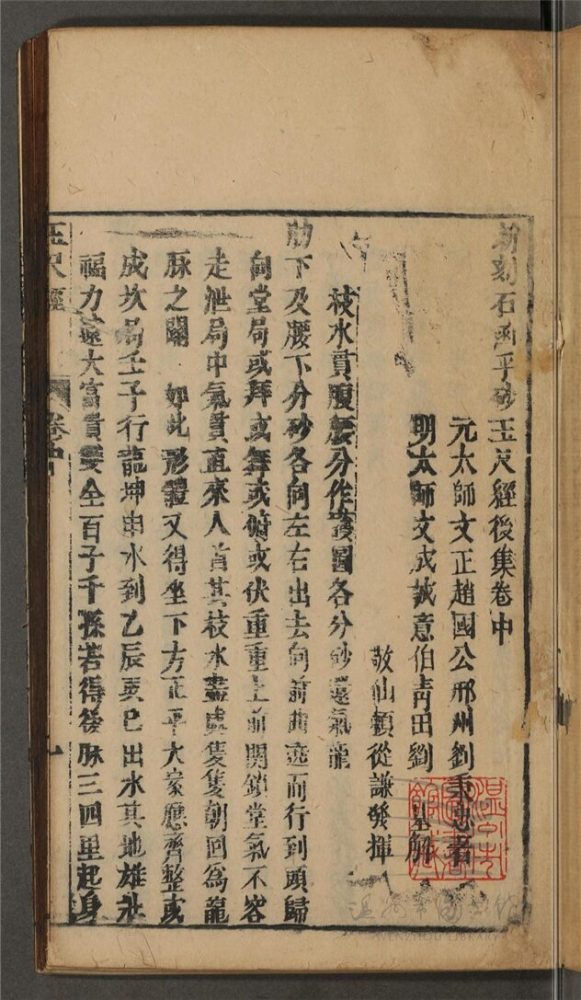 新刻石函平砂玉尺經後集卷中
元太師文正趙國公邢州劉秉忠著
明太師文成誠意伯青田劉基解
敬仙賴從謙發揮
枝水貫腹腰分作護圖各分砂還氣龍
肋下及腰下分砂各向左右出去向前迤而行到頭歸
向堂局或拜或舞或俯或伏重重上前関鎖堂氣不容
走泄局中氣貫直來人首其枝水盡處隻隻朝回為龍
脉之關如此形體又得坐下方正平大案應齊整或
成坎局壬子行龍坤申水到乙辰巽巳出水其地雄壯
福力遠大富貴雙全百子千孫若得後脉三四里起身
玉尺經
卷中